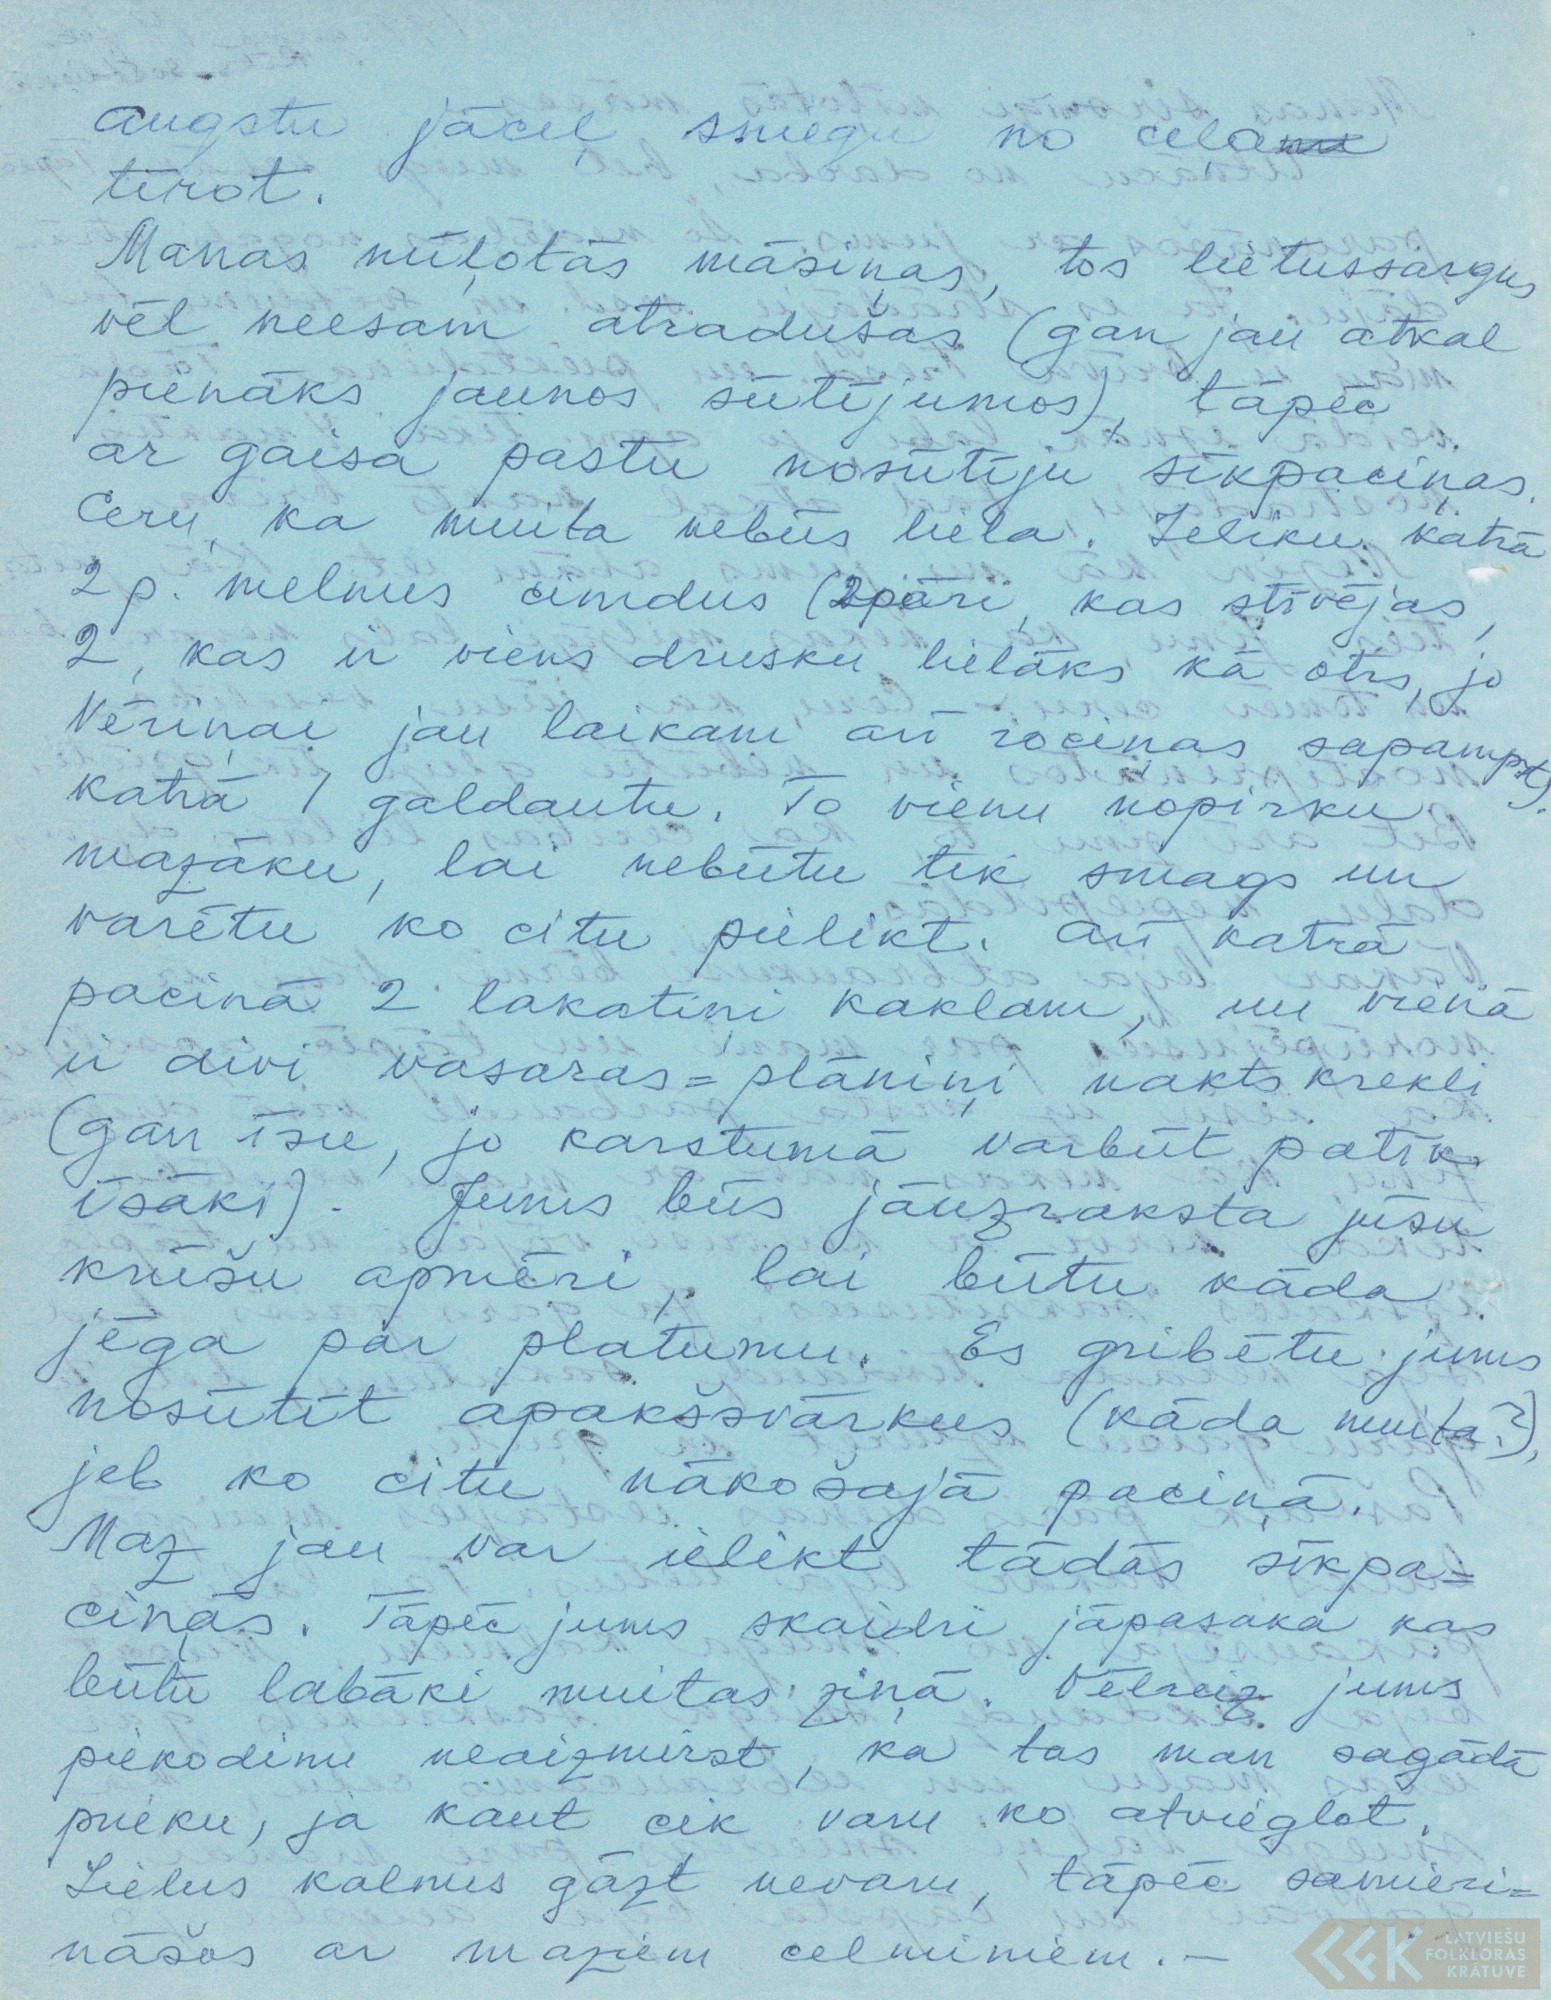 augstu jāceļ sniegu no ceļa
tīrot.
Manas mīļotās māsiņas, tos lietussargus
vēl neesam atradušas (gan jau atkal
pienāks jaunos sūtījumos), tāpēc
ar gaisa pastu nosūtīju sīkpaciņas.
Ceru, ka muita nebūs liela. Ieliku katrā
2 p. melnus cimdus (2 pāri, kas stīvējas,
2, kas ir viens drusku lielāks kā otrs, jo
Vēriņai jau laikam arī rociņas sapampst).
katrā 1 galdautu. To vienu nopirku
mazāku, lai nebūtu tik smags un
varētu ko citu pielikt. Arī katrā
paciņā 2 lakatiņi kaklam, un vienā
ir divi vasaras=plāniņi nakts krekli
(gan īsu, jo karstumā varbūt patīk
īsāki). Jums būs jāuzraksta jūsu
krūšu apmēri, lai būtu kāda
jēga par platumu. Es gribētu jums
nosūtīt apakšsvārkus (kāda muita?),
jeb ko citu nākošajā paciņā.
Maz jau var ielikt tādās sīkpa=
ciņās. Tāpēc jums skaidri jāpasaka kas
būtu labāki muitas ziņā. Vēlreiz jums
piekodinu neaizmirst, ka tas man sagādā
prieku, ja kaut cik varu ko atvieglot.
Lielus kalnus gāzt nevaru, tāpēc samieri=
nāšos ar maziem celmiņiem. –
LATVIEŠU
FOLKLORAS
KRĀTUVE